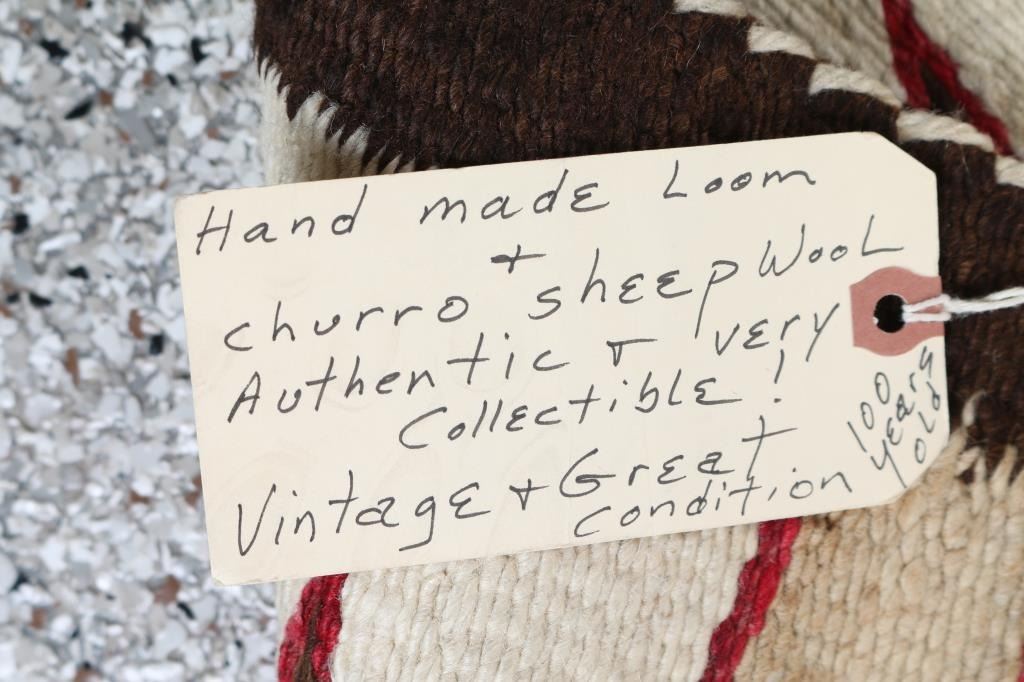 Hand made Loom
+
churro sheep Wool
Authentic + very
Collectible!
Vintage + Great
condition
100
years
old